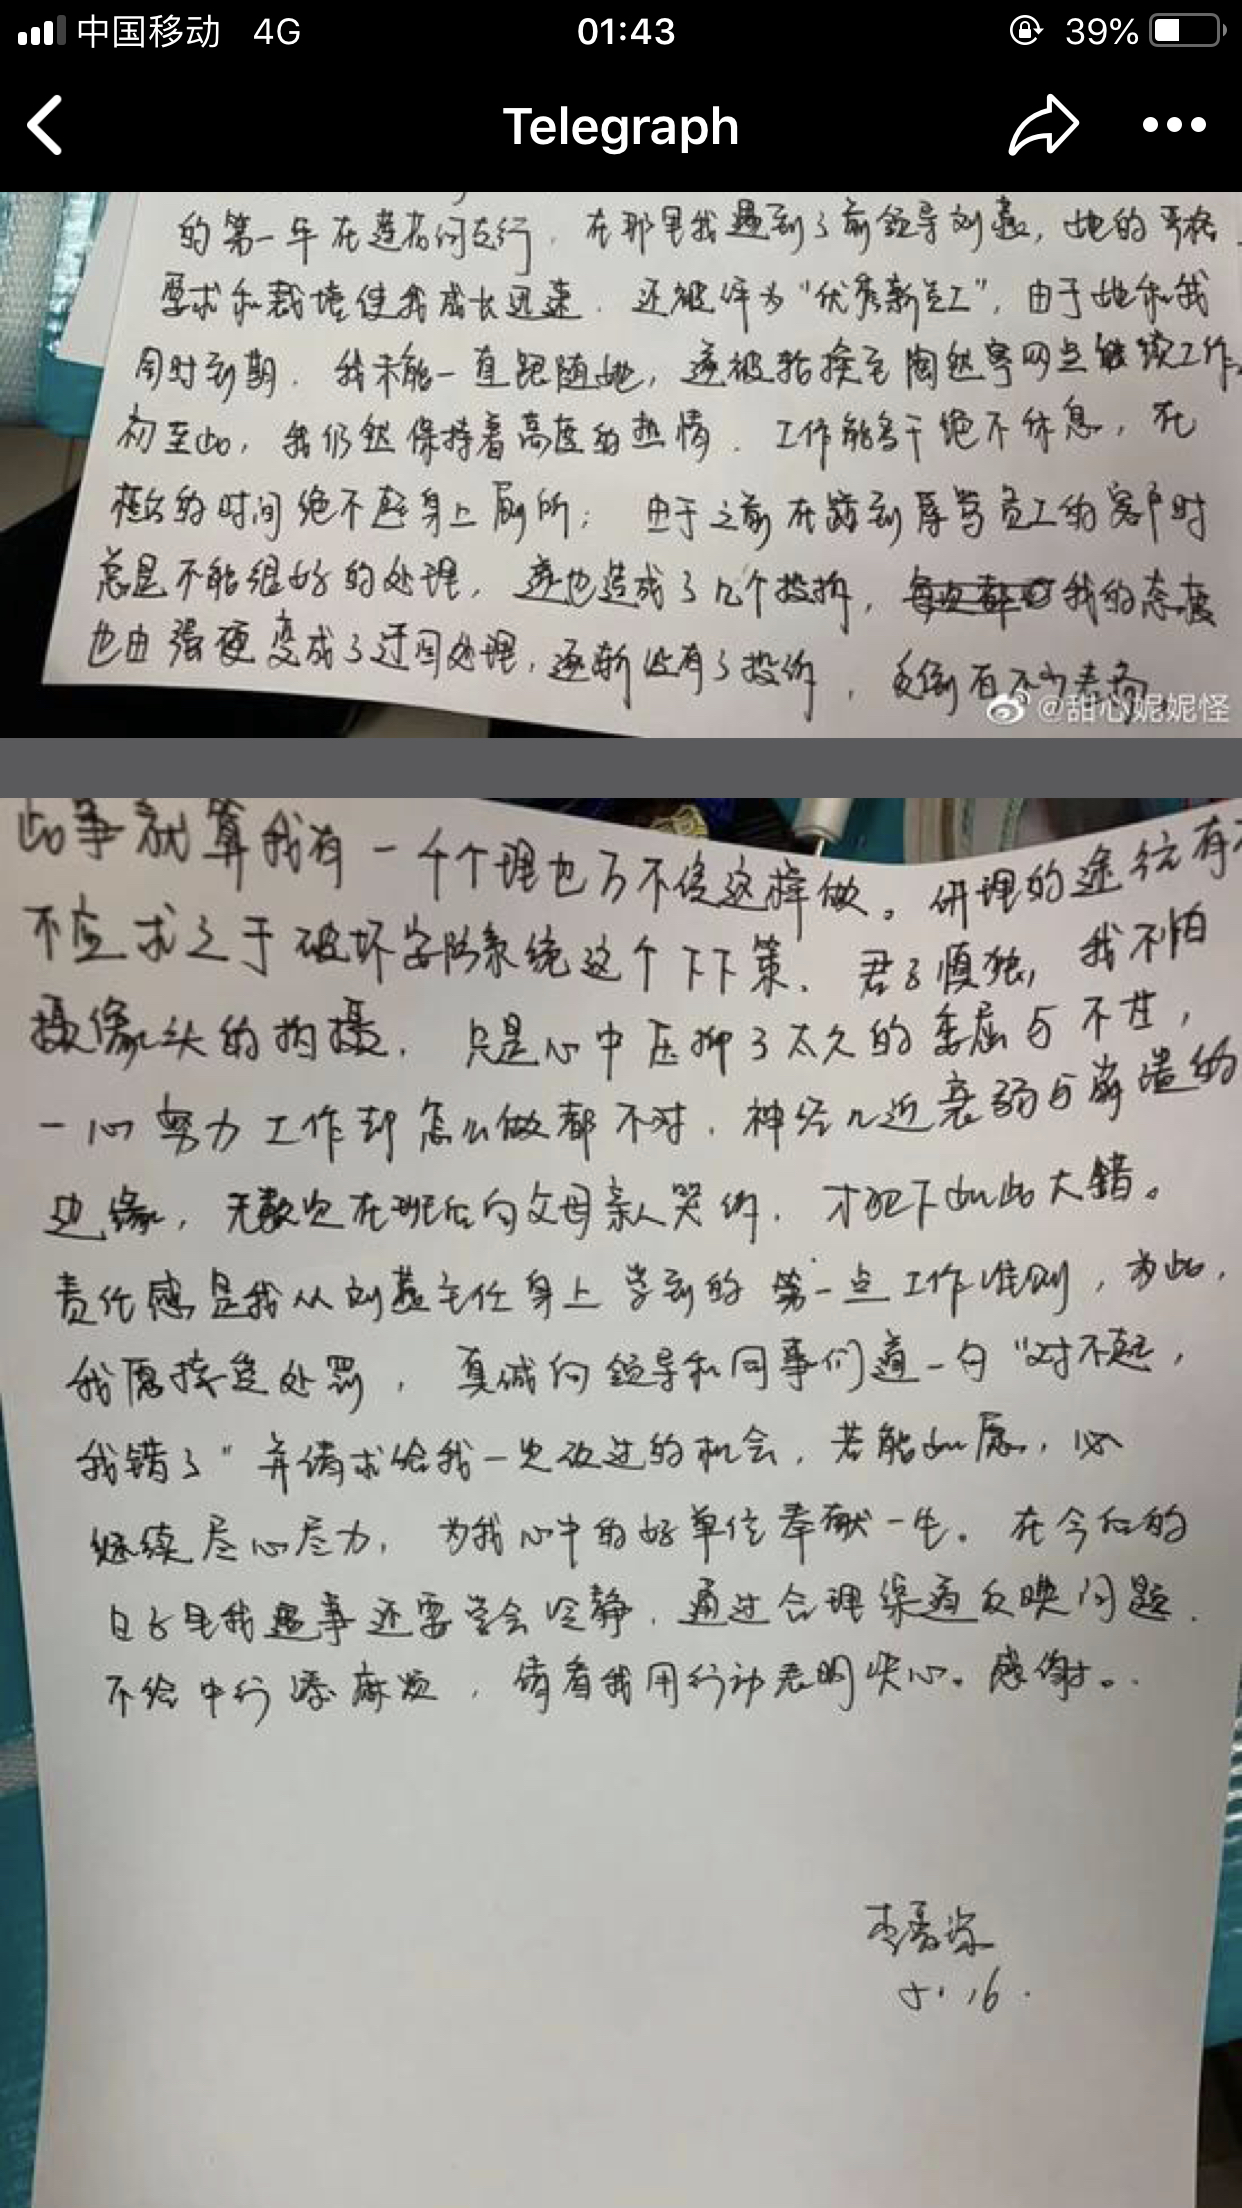 中国移动 4G 01:43 39%
Telegraph
的第一年在莲花河支行，在那里我遇到了前领导刘，她的严格
要求和栽培使我成长迅速，还被评为“优秀新员工”，由于她和我
同时到期，我未能一直跟随她，遂被轮换至陶然亭网点继续工作，
初至此，我仍然保持着高度的热情，工作能多干绝不休息，在
柜台的时间绝不起身上厕所；由于之前在碰到辱骂员工的客户时
总是不能很好的处理，遂也造成了几个投诉，我的态度
也由强硬变成了迂回处理，逐渐没有了投诉，反倒有不少表扬，
@甜心妮妮怪
此事就算我有一千个理也万不该这样做。讲理的途径有
不应求之于破坏安防系统这个下下策，君子慎独，我不怕
摄像头的拘摄，只是心中压抑了太久的委屈与不甘，
一心努力工作却怎么做都不对，神经几近衰弱与崩溃的
边缘，无数次在班后向父母亲人哭诉，才犯下如此大错。
责任感是我从刘主任身上学到的第一点工作准则，为此，
我愿接受处罚，真诚向领导和同事们道一句“对不起，
我错了”并请求给我一次改过的机会，若能如愿，必
继续尽心尽力，为我心中的好单位奉献一生。在今后的
日子里我遇事还要学会冷静，通过合理渠道反映问题，
不给中行添麻烦，请看我用行动表明决心。感谢。
李
5.16.